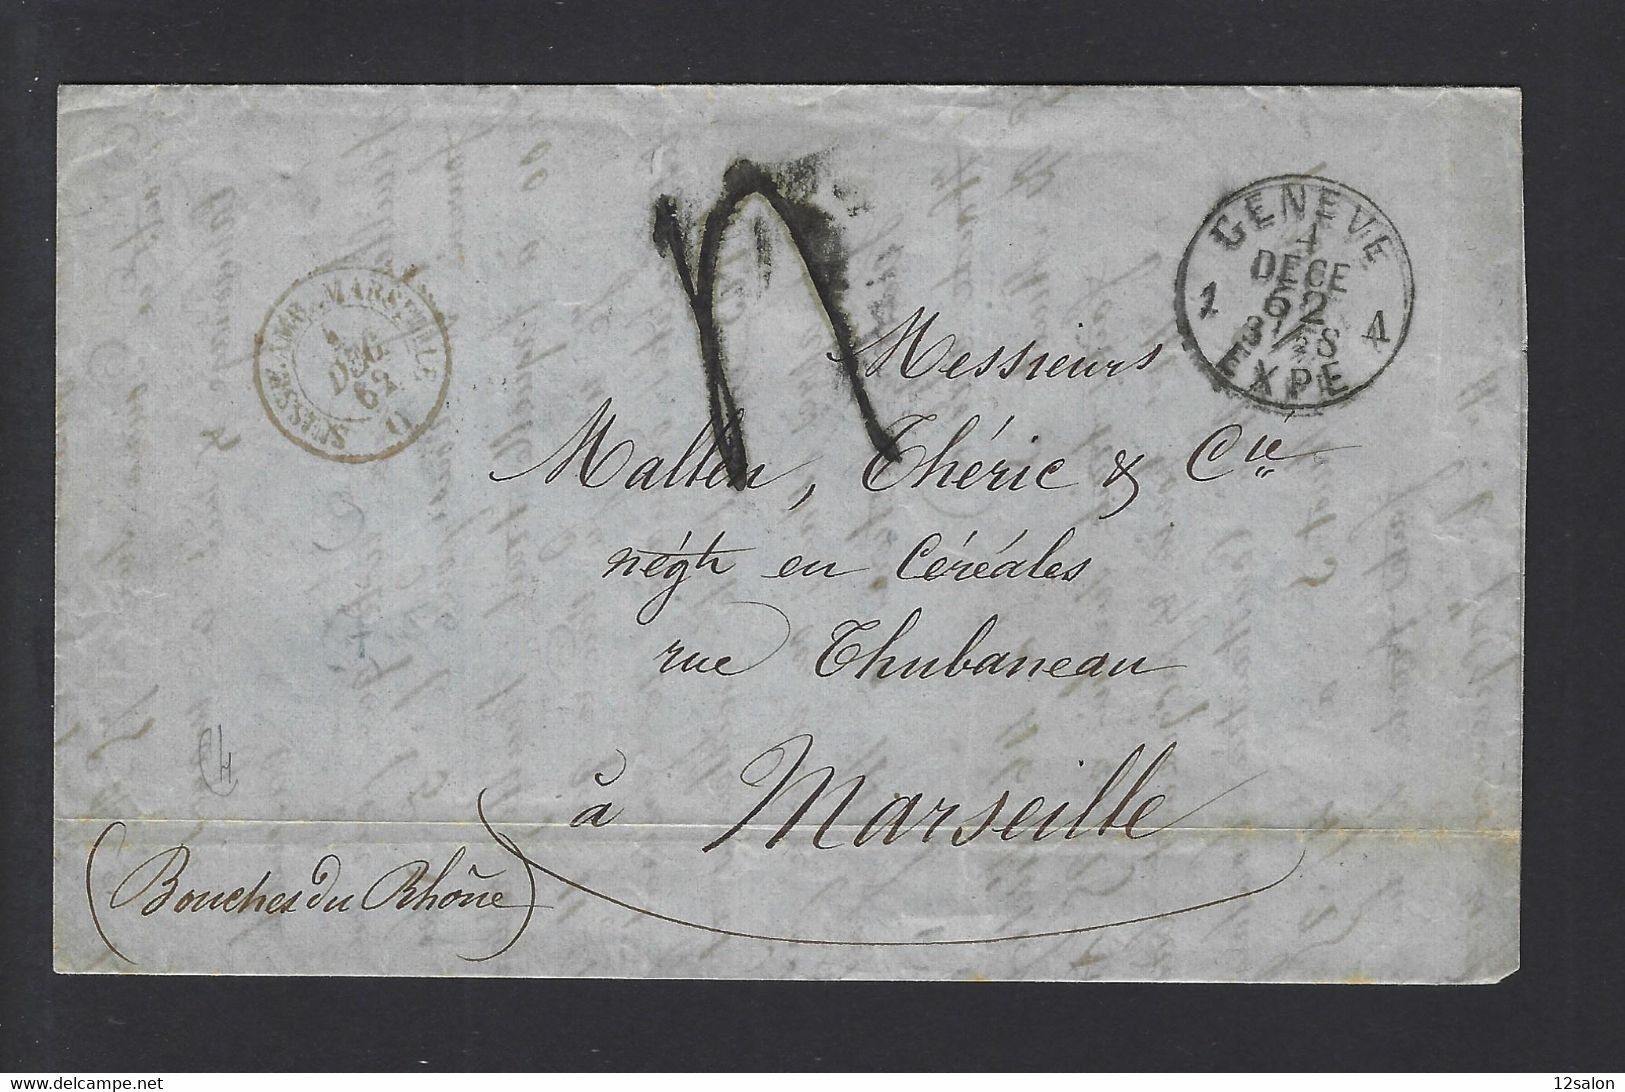 GENEVE
1
DECE
62
3½S
EXPE
1 A
SUISSE. AMB. MARSEILLE
DEC.
62
Messieurs
Mallen, Théric & Cie
négt en Céréales
rue Thubaneau
à Marseille
(Bouches du Rhône)
www.delcampe.net
12salon